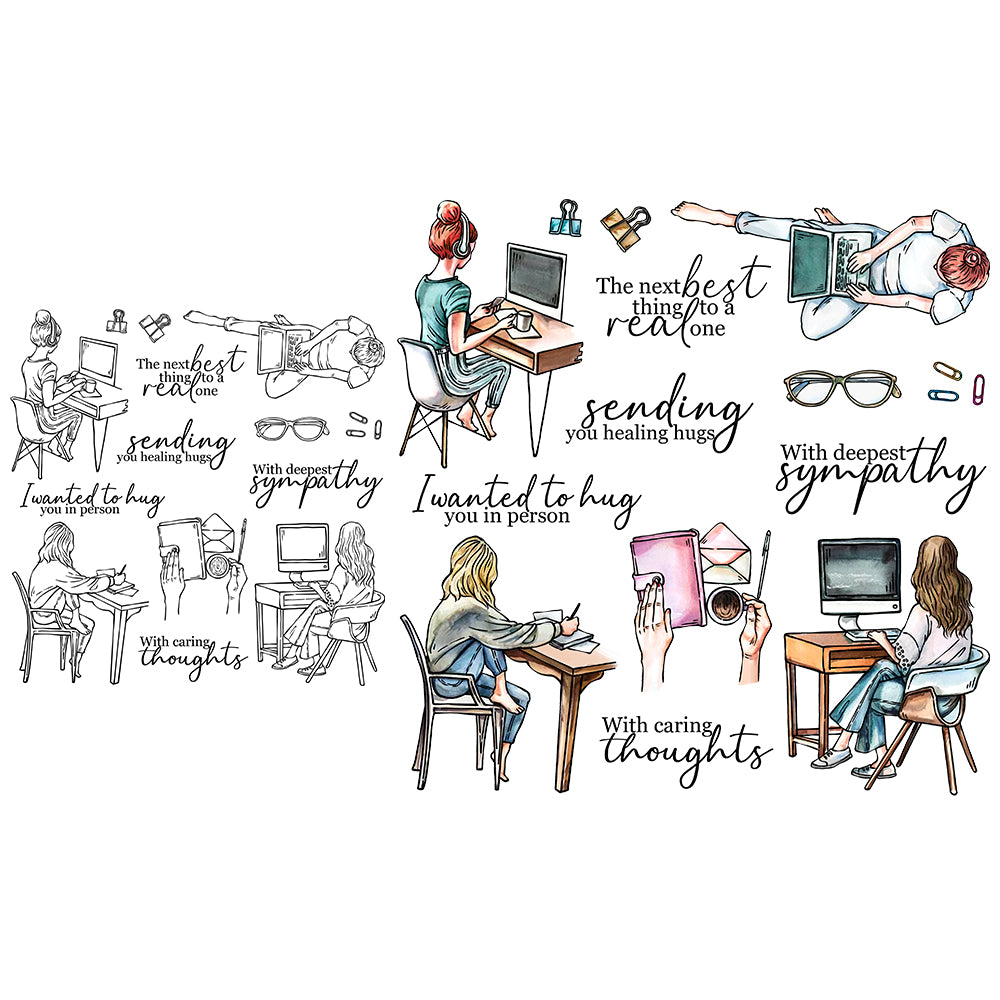 The next best
thing to a
real one
sending
you healing hugs
I wanted to hug
you in person
With deepest
sympathy
With caring
thoughts
The next best
thing to a
real one
sending
you healing hugs
With deepest
sympathy
I wanted to hug
you in person
With caring
thoughts